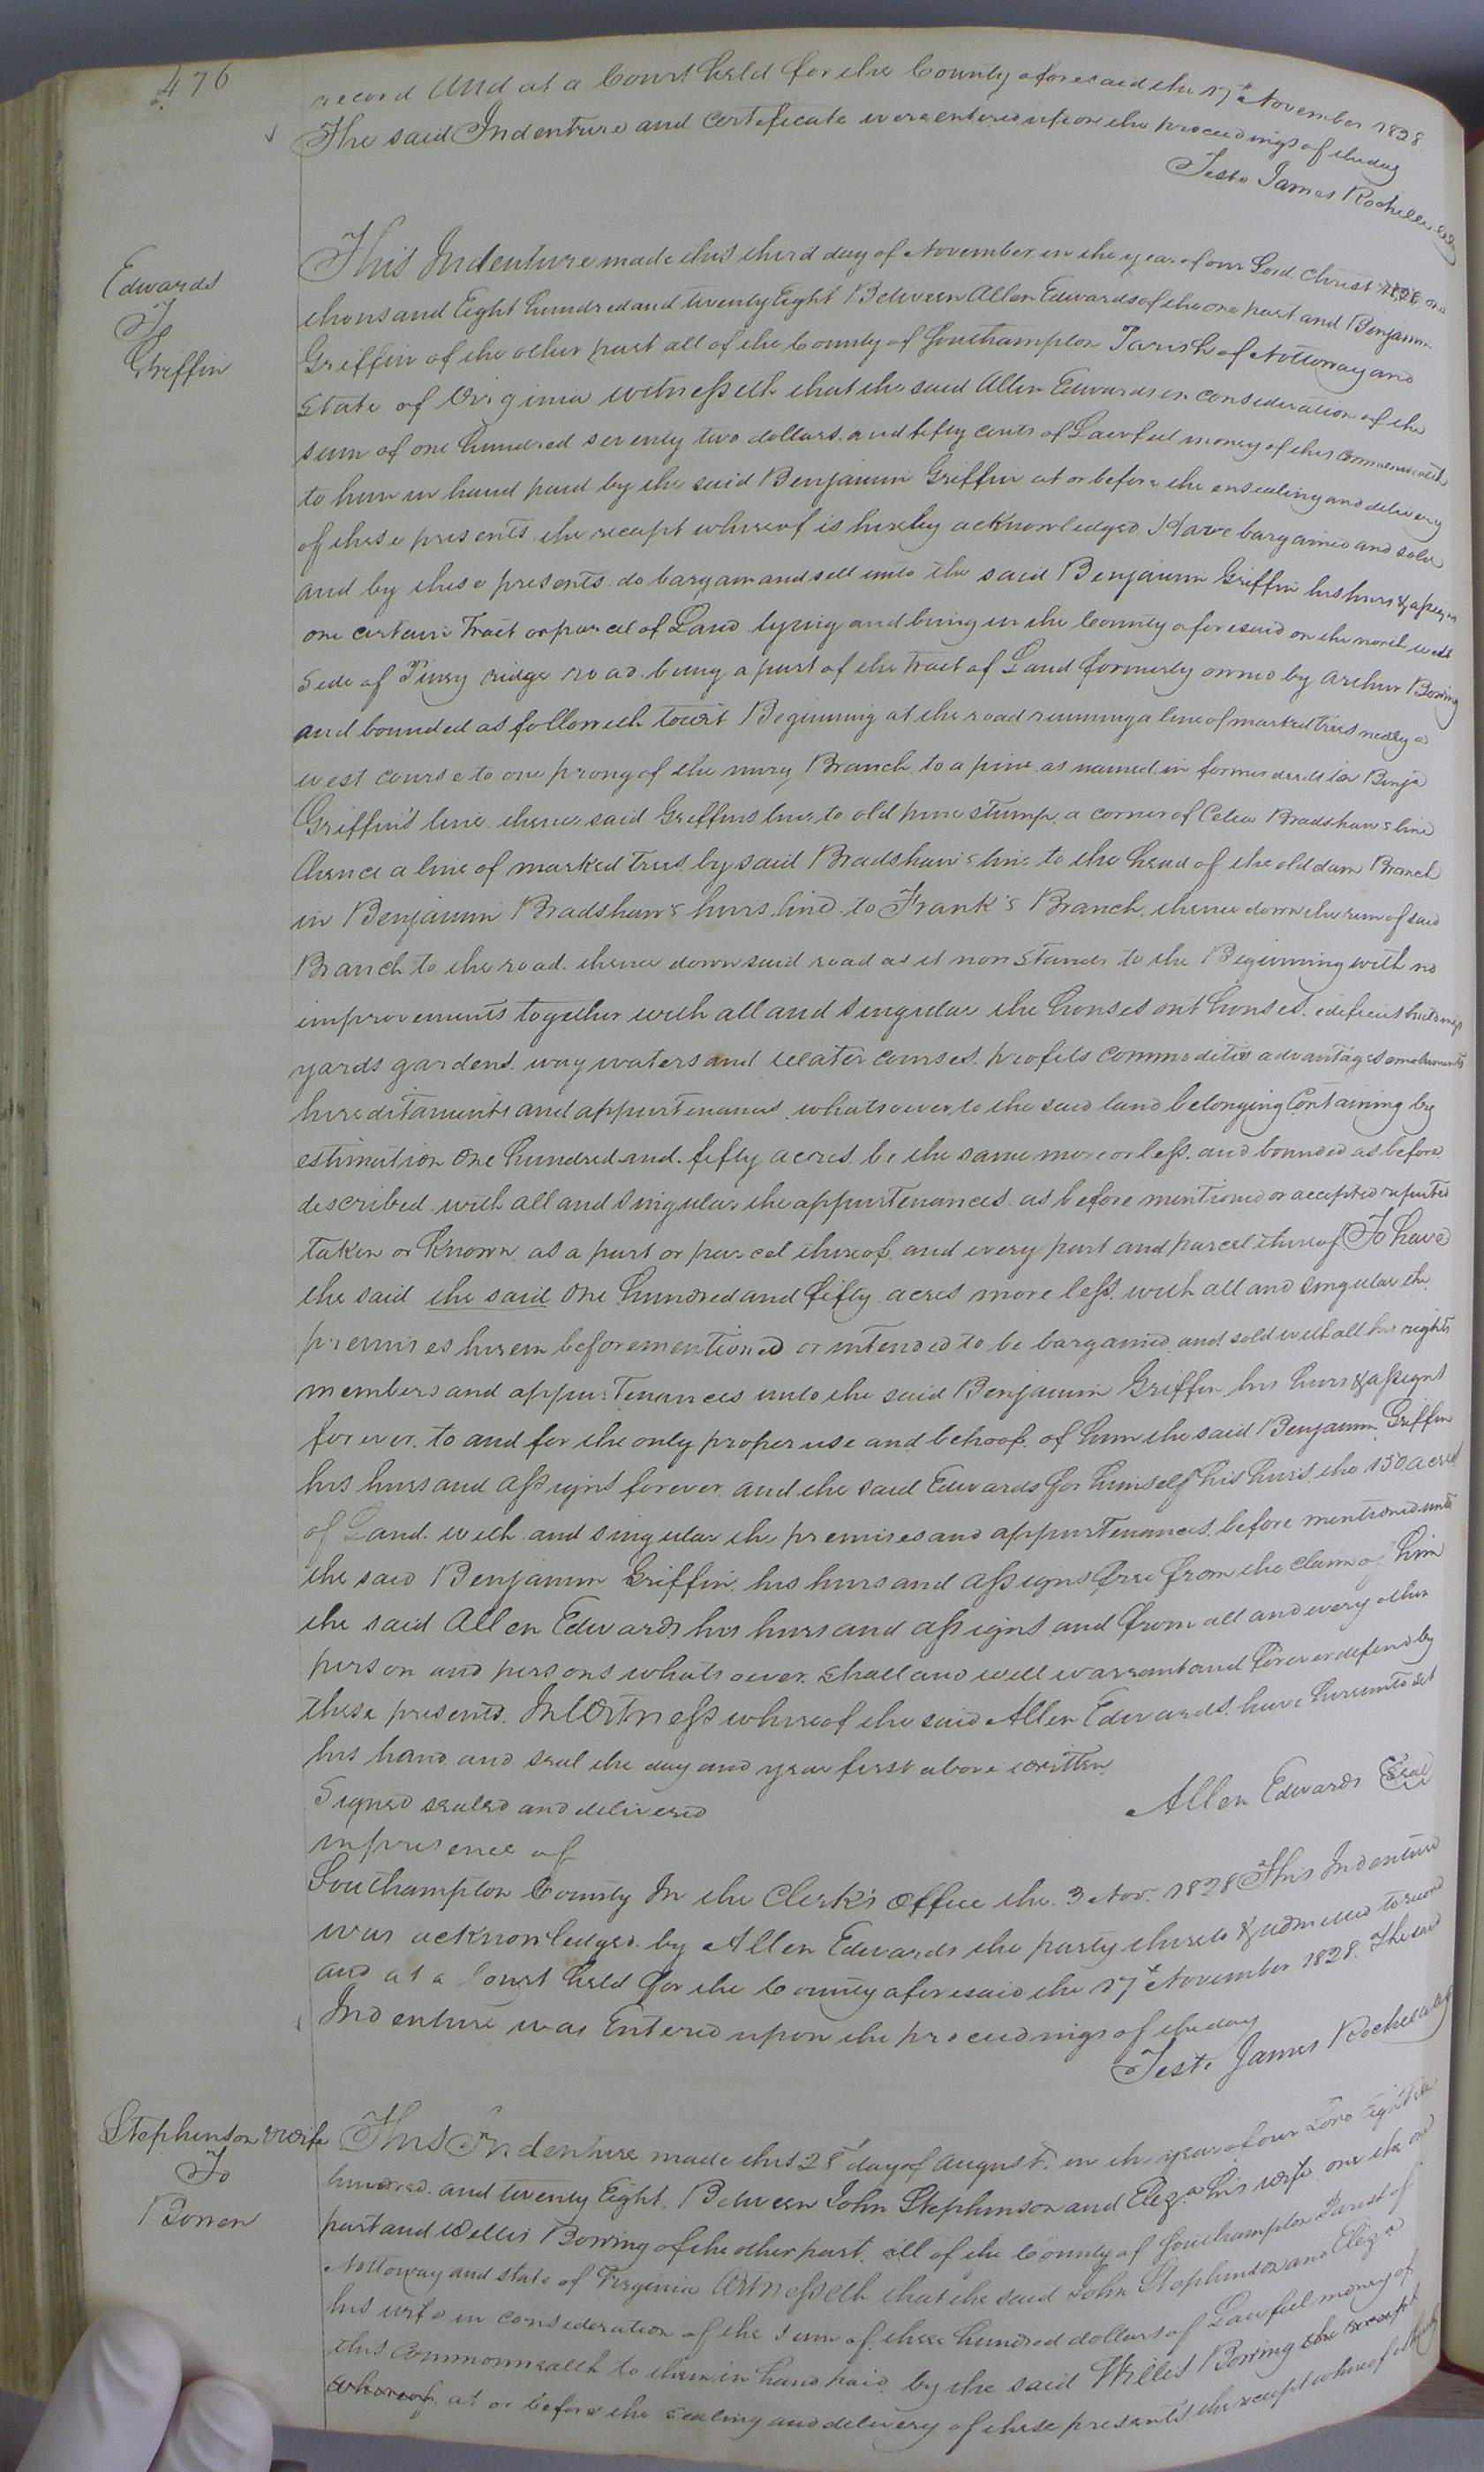 476
record And at a Court held for the County aforesaid the 17th November 1828.
The said Indenture and certificate were entered upon the proceedings of the day
Teste James Rochelle
Edwards
To
Griffin
This Indenture made this third day of November in the year of our Lord Christ one
thousand Eight hundred and twenty Eight Between Allen Edwards of the one part and Benjamin
Griffin of the other part all of the County of Southampton Parish of Nottoway and
State of Virginia witnesseth that the said Allen Edwards in consideration of the
sum of one hundred seventy two dollars and fifty cents of Lawful money of this commonwealth
to him in hand paid by the said Benjamin Griffin at or before the ensealing and delivery
of these presents the receipt whereof is hereby acknowledged Have bargained and sold
and by these presents do bargain and sell unto the said Benjamin Griffin his heirs & assigns
one certain Tract or parcel of Land lying and being in the County aforesaid on the north west
side of Piney ridge road being a part of the Tract of Land formerly owned by Arthur Bowing
and bounded as followeth towit Beginning at the road running a line of marked trees nearly a
west course to one prong of the miry Branch to a pine as named in former deeds in Benja
Griffin's line thence said Griffins line to old pine stump a corner of Celia Bradshaw's line
thence a line of marked trees by said Bradshaw's line to the head of the old dam Branch
in Benjamin Bradshaw's heirs line to Frank's Branch thence down the run of said
Branch to the road thence down said road as it now stands to the Beginning with no
improvements together with all and singular the houses out houses edifices buildings
yards gardens way waters and water courses profits commodities advantages emoluments
hereditaments and appurtenances whatsoever to the said land belonging Containing by
estimation One hundred and fifty acres be the same more or less and bounded as before
described with all and singular the appurtenances as before mentioned or accepted reputed
taken or known as a part or parcel thereof and every part and parcel thereof To have
the said the said One hundred and fifty acres more less with all and singular the
premises herein beforementioned or intended to be bargained and sold with all his rights
members and appurtenances unto the said Benjamin Griffin his heirs & assigns
forever to and for the only proper use and behoof of him the said Benjamin Griffin
his heirs and assigns forever and the said Edwards for himself his heirs the 150 acres
of Land with and singular the premises and appurtenances before mentioned unto
the said Benjamin Griffin his heirs and assigns free from the claim of him
the said Allen Edwards his heirs and assigns and from all and every other
person and persons whatsoever shall and will warrant and forever defend by
these presents. In Witness whereof the said Allen Edwards have hereunto set
his hand and seal the day and year first above written
Allen Edwards Seal
Signed sealed and delivered
in presence of
Southampton County In the Clerk's Office the 3 Nov. 1828 This Indenture
was acknowledged by Allen Edwards the party thereto & admitted to record
and at a Court held for the County aforesaid the 17th November 1828. The said
Indenture was Entered upon the proceedings of the day
Teste James Rochelle
Stephenson & wife
To
Bowen
This Indenture made this 28th day of August in the year of our Lord Eighteen
hundred and twenty Eight Between John Stephenson and Eliza his wife one the one
part and Willis Bowing of the other part all of the County of Southampton Parish of
Nottoway and state of Virginia Witnesseth that the said John Stephenson and Eliza
his wife in consideration of the sum of three hundred dollars of Lawful money of
this commonwealth to them in hand paid by the said Willis Bowing the receipt
whereof at or before the sealing and delivery of these presents the receipt whereof